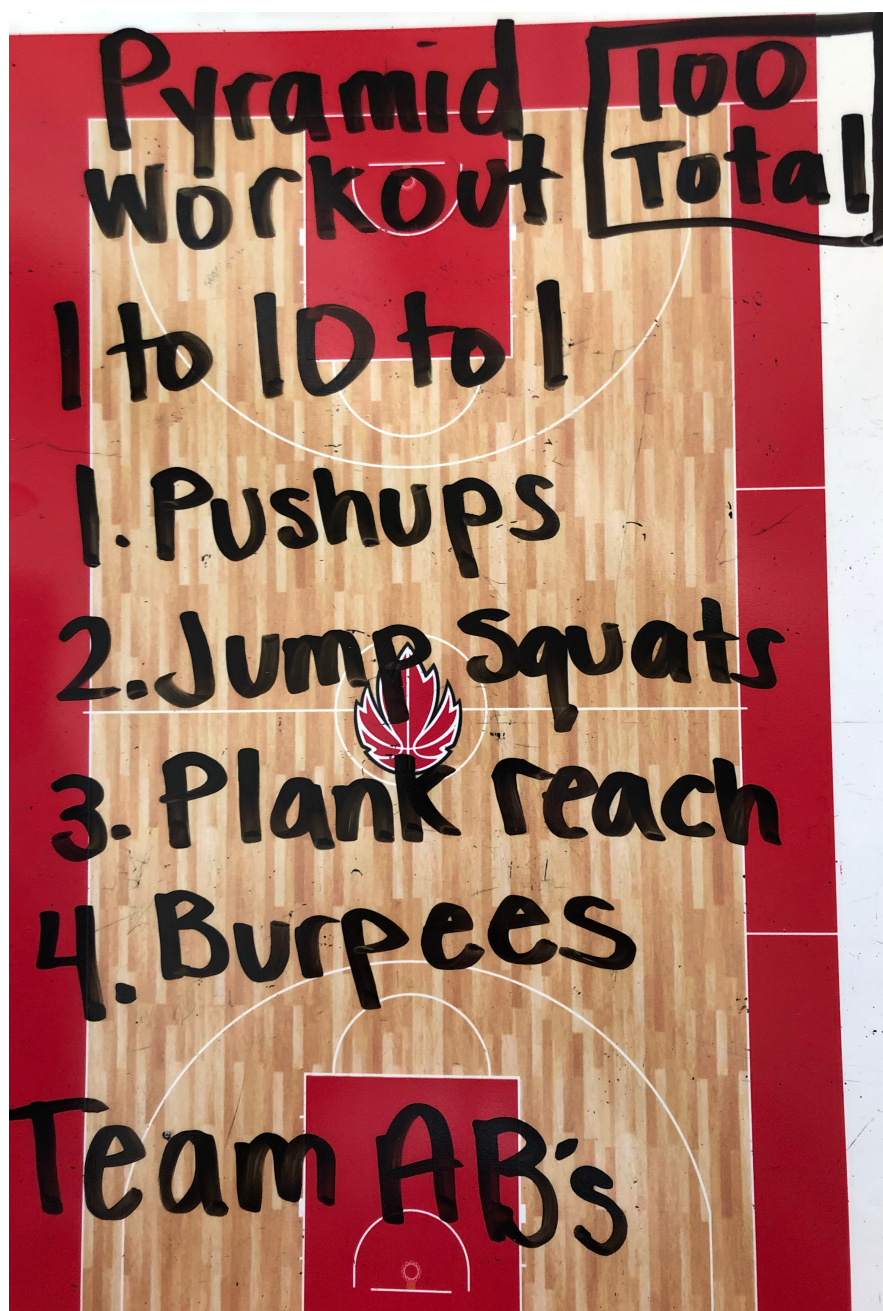 Pyramid
Workout
100
Total
1 to 10 to 1
1. Pushups
2. Jump Squats
3. Plank reach
4. Burpees
Team AB's